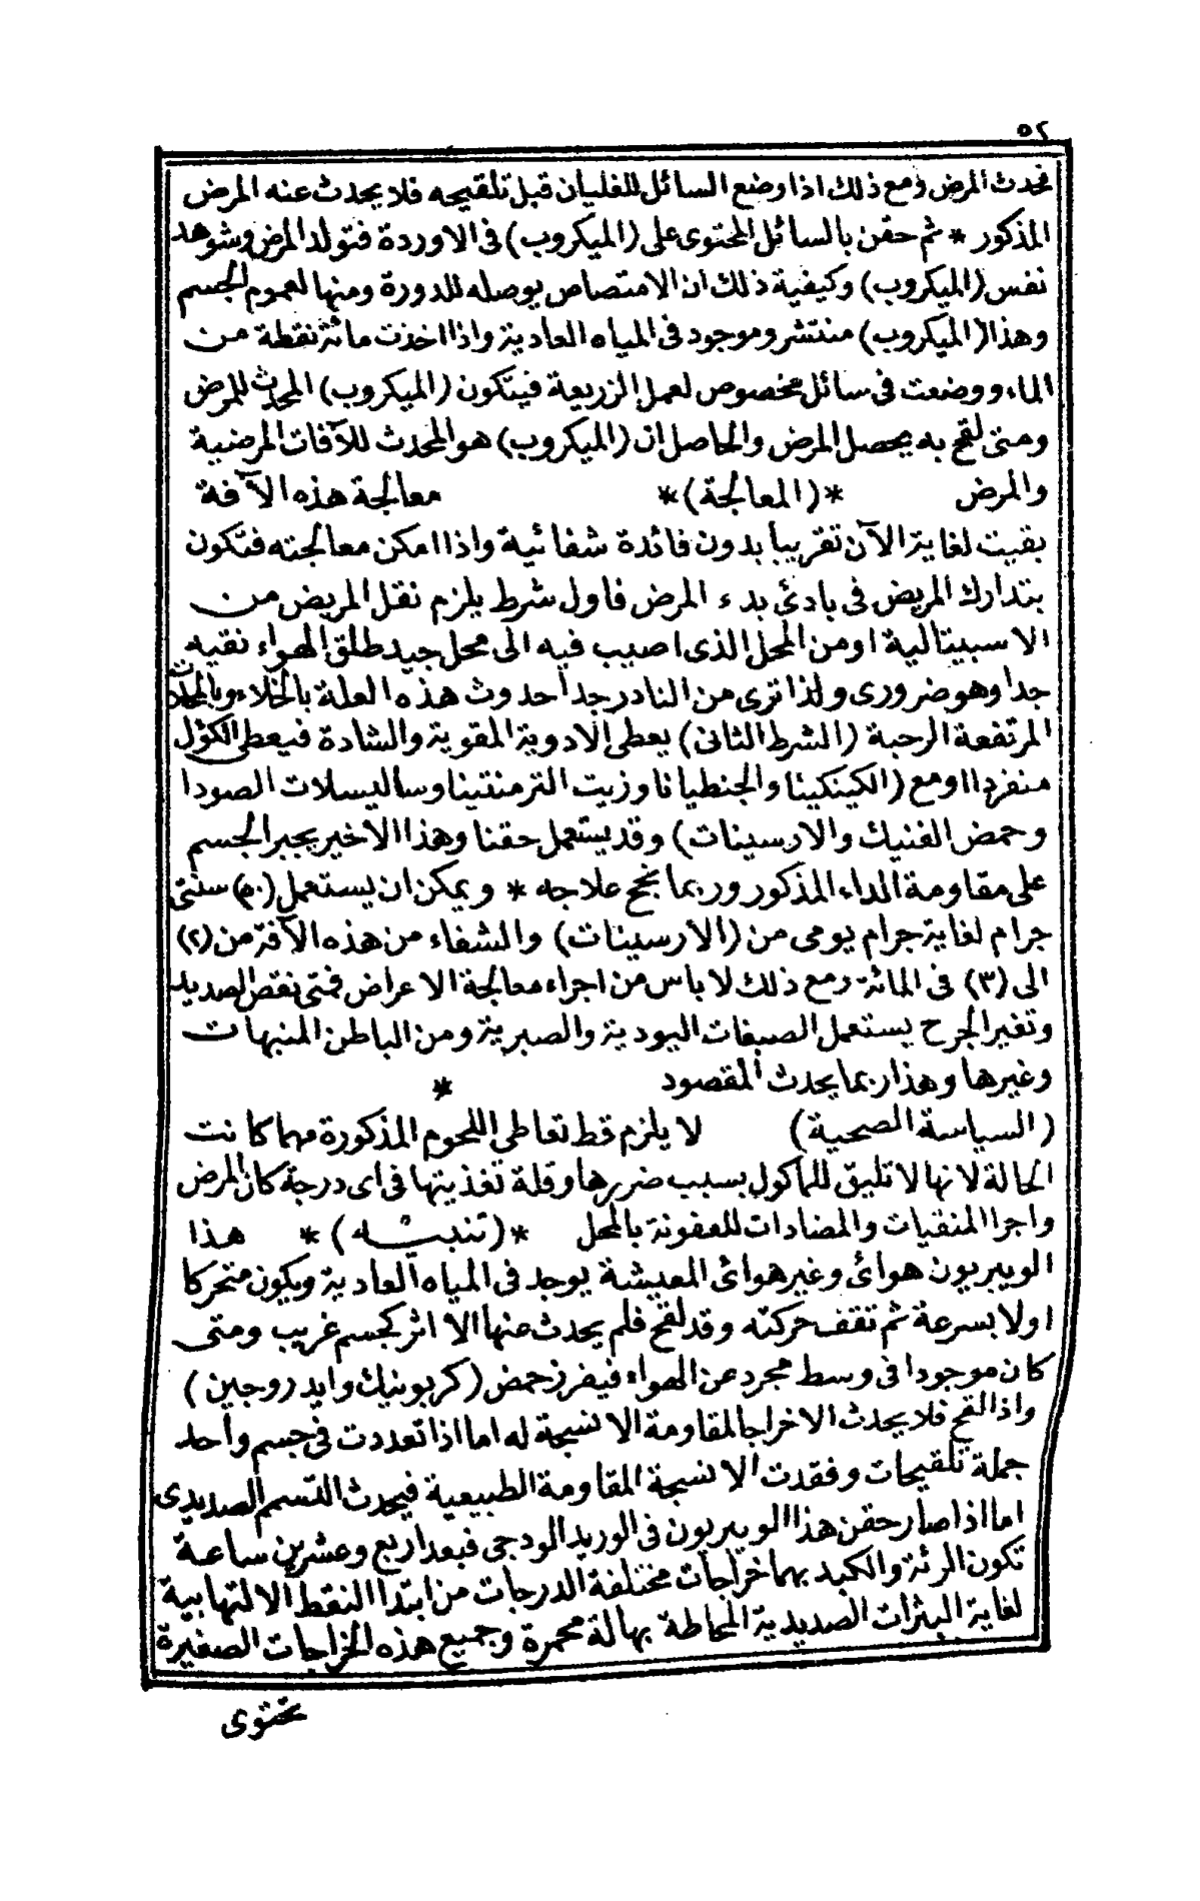 ٥٢
فحدث المرض ومع ذلك اذا وضع السائل للغليان قبل تلقيحه فلا يحدث عنه المرض
المذكور * ثم حقن بالسائل المحتوى على (الميكروب) فى الاوردة فتولد المرض وشوهد
نفس (الميكروب) وكيفية ذلك ان الامتصاص يوصله للدورة ومنها لعموم الجسم
وهذا (الميكروب) منتشر وموجود فى المياه العادية واذا اخذت مائة نقطة من
الماء ووضعت فى سائل مخصوص لعمل الزريعة فيتكون (الميكروب) المحدث للمرض
ومتى لقح به يحصل المرض والحاصل ان (الميكروب) هو المحدث للآفات المرضية
والمرض *(المعالجة)* معالجة هذه الآفة
بقيت لغاية الآن تقريبا بدون فائدة شفائية واذا امكن معالجته فتكون
بتدارك المريض فى بادئ بدء المرض فاول شرط يلزم نقل المريض من
الاسبيتالية او من المحل الذى اصيب فيه الى محل جيد طلق الهواء نقيه
جدا وهو ضرورى ولذا ترى من النادر جدا حدوث هذه العلة بالخلاء وبالمحلات
المرتفعة الرحبة (الشرط الثانى) يعطى الادوية المقوية والشادة فيعطى الكؤل
منفردا او مع (الكينكينا والجنطيانا وزيت الترمنتينا وساليسلات الصودا
وحمض الفنيك والارسينات) وقد يستعمل حقنا وهذا الاخير يجبر الجسم
على مقاومة الداء المذكور وربما نجح علاجه * ويمكن ان يستعمل (٥٠) سنتى
جرام لغاية جرام يومى من (الارسينات) والشفاء من هذه الآفة من (٢)
الى (٣) فى المائة ومع ذلك لا باس من اجراء معالجة الاعراض فمتى نقص الصديد
وتغير الجرح يستعمل الصبغات اليودية والصبرية ومن الباطن المنبهات
وغيرها وهذا ربما يحدث المقصود *
(السياسة الصحية) لا يلزم قط تعاطى اللحوم المذكورة مهما كانت
الحالة لانها لا تليق للماكول بسبب ضررها وقلة تغذيتها فى اى درجة كان المرض
واجرا المنقيات والمضادات للعفونة بالمحل *(تنبيه)* هذا
الويبريون هوائى وغير هوائى المعيشة يوجد فى المياه العادية ويكون متحركا
اولا بسرعة ثم تقف حركته وقد لقح فلم يحدث عنها الا اثر كجسم غريب ومتى
كان موجودا فى وسط مجرد عن الهواء فيفرز حمض (كربونيك وايدروجين)
واذا لقح فلا يحدث الاخراجا لمقاومة الانسجة له اما اذا تعددت فى جسم واحد
جملة تلقيحات وفقدت الانسجة المقاومة الطبيعية فيحدث التسمم الصديدى
اما اذا صار حقن هذا الويبريون فى الوريد الودجى فبعد اربع وعشرين ساعة
تكون الرئة والكبد بهما خراجات مختلفة الدرجات من ابتدا النقط الالتهابية
لغاية البثرات الصديدية المحاطة بهالة محمرة وجميع هذه الخراجات الصغيرة
تحتوى